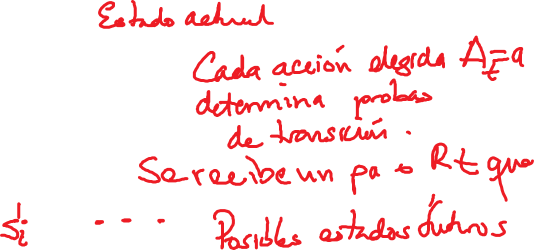 Estado actual
Cada acción elegida A_t=a
determina probas
de transición.
Se recibe un pa o Rt que
s'_i ... Posibles estados futuros